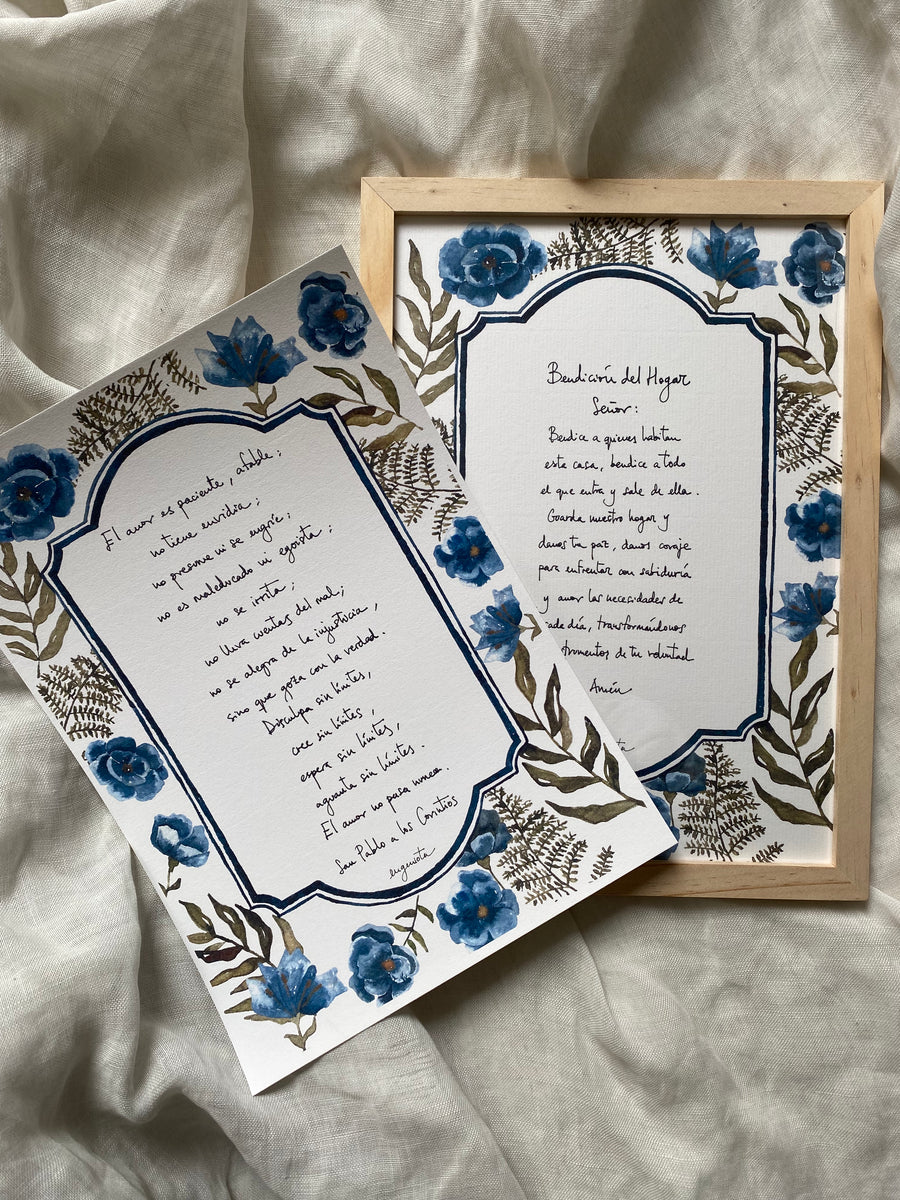 El amor es paciente, afable;
no tiene envidia;
no presume ni se engríe;
no es maleducado ni egoista;
no se irrita;
no lleva cuentas del mal;
no se alegra de la injusticia,
sino que goza con la verdad.
Disculpa sin límites,
cree sin límites,
espera sin límites,
aguanta sin límites.
El amor no pasa nunca.
San Pablo a los Corintios
eugeniota
Bendición del Hogar
Señor:
Bendice a quienes habitan
esta casa, bendice a todo
el que entra y sale de ella.
Guarda nuestro hogar y
danos tu paz, danos coraje
para enfrentar con sabiduría
y amor las necesidades de
cada día, transformándonos
instrumentos de tu voluntad
Amén